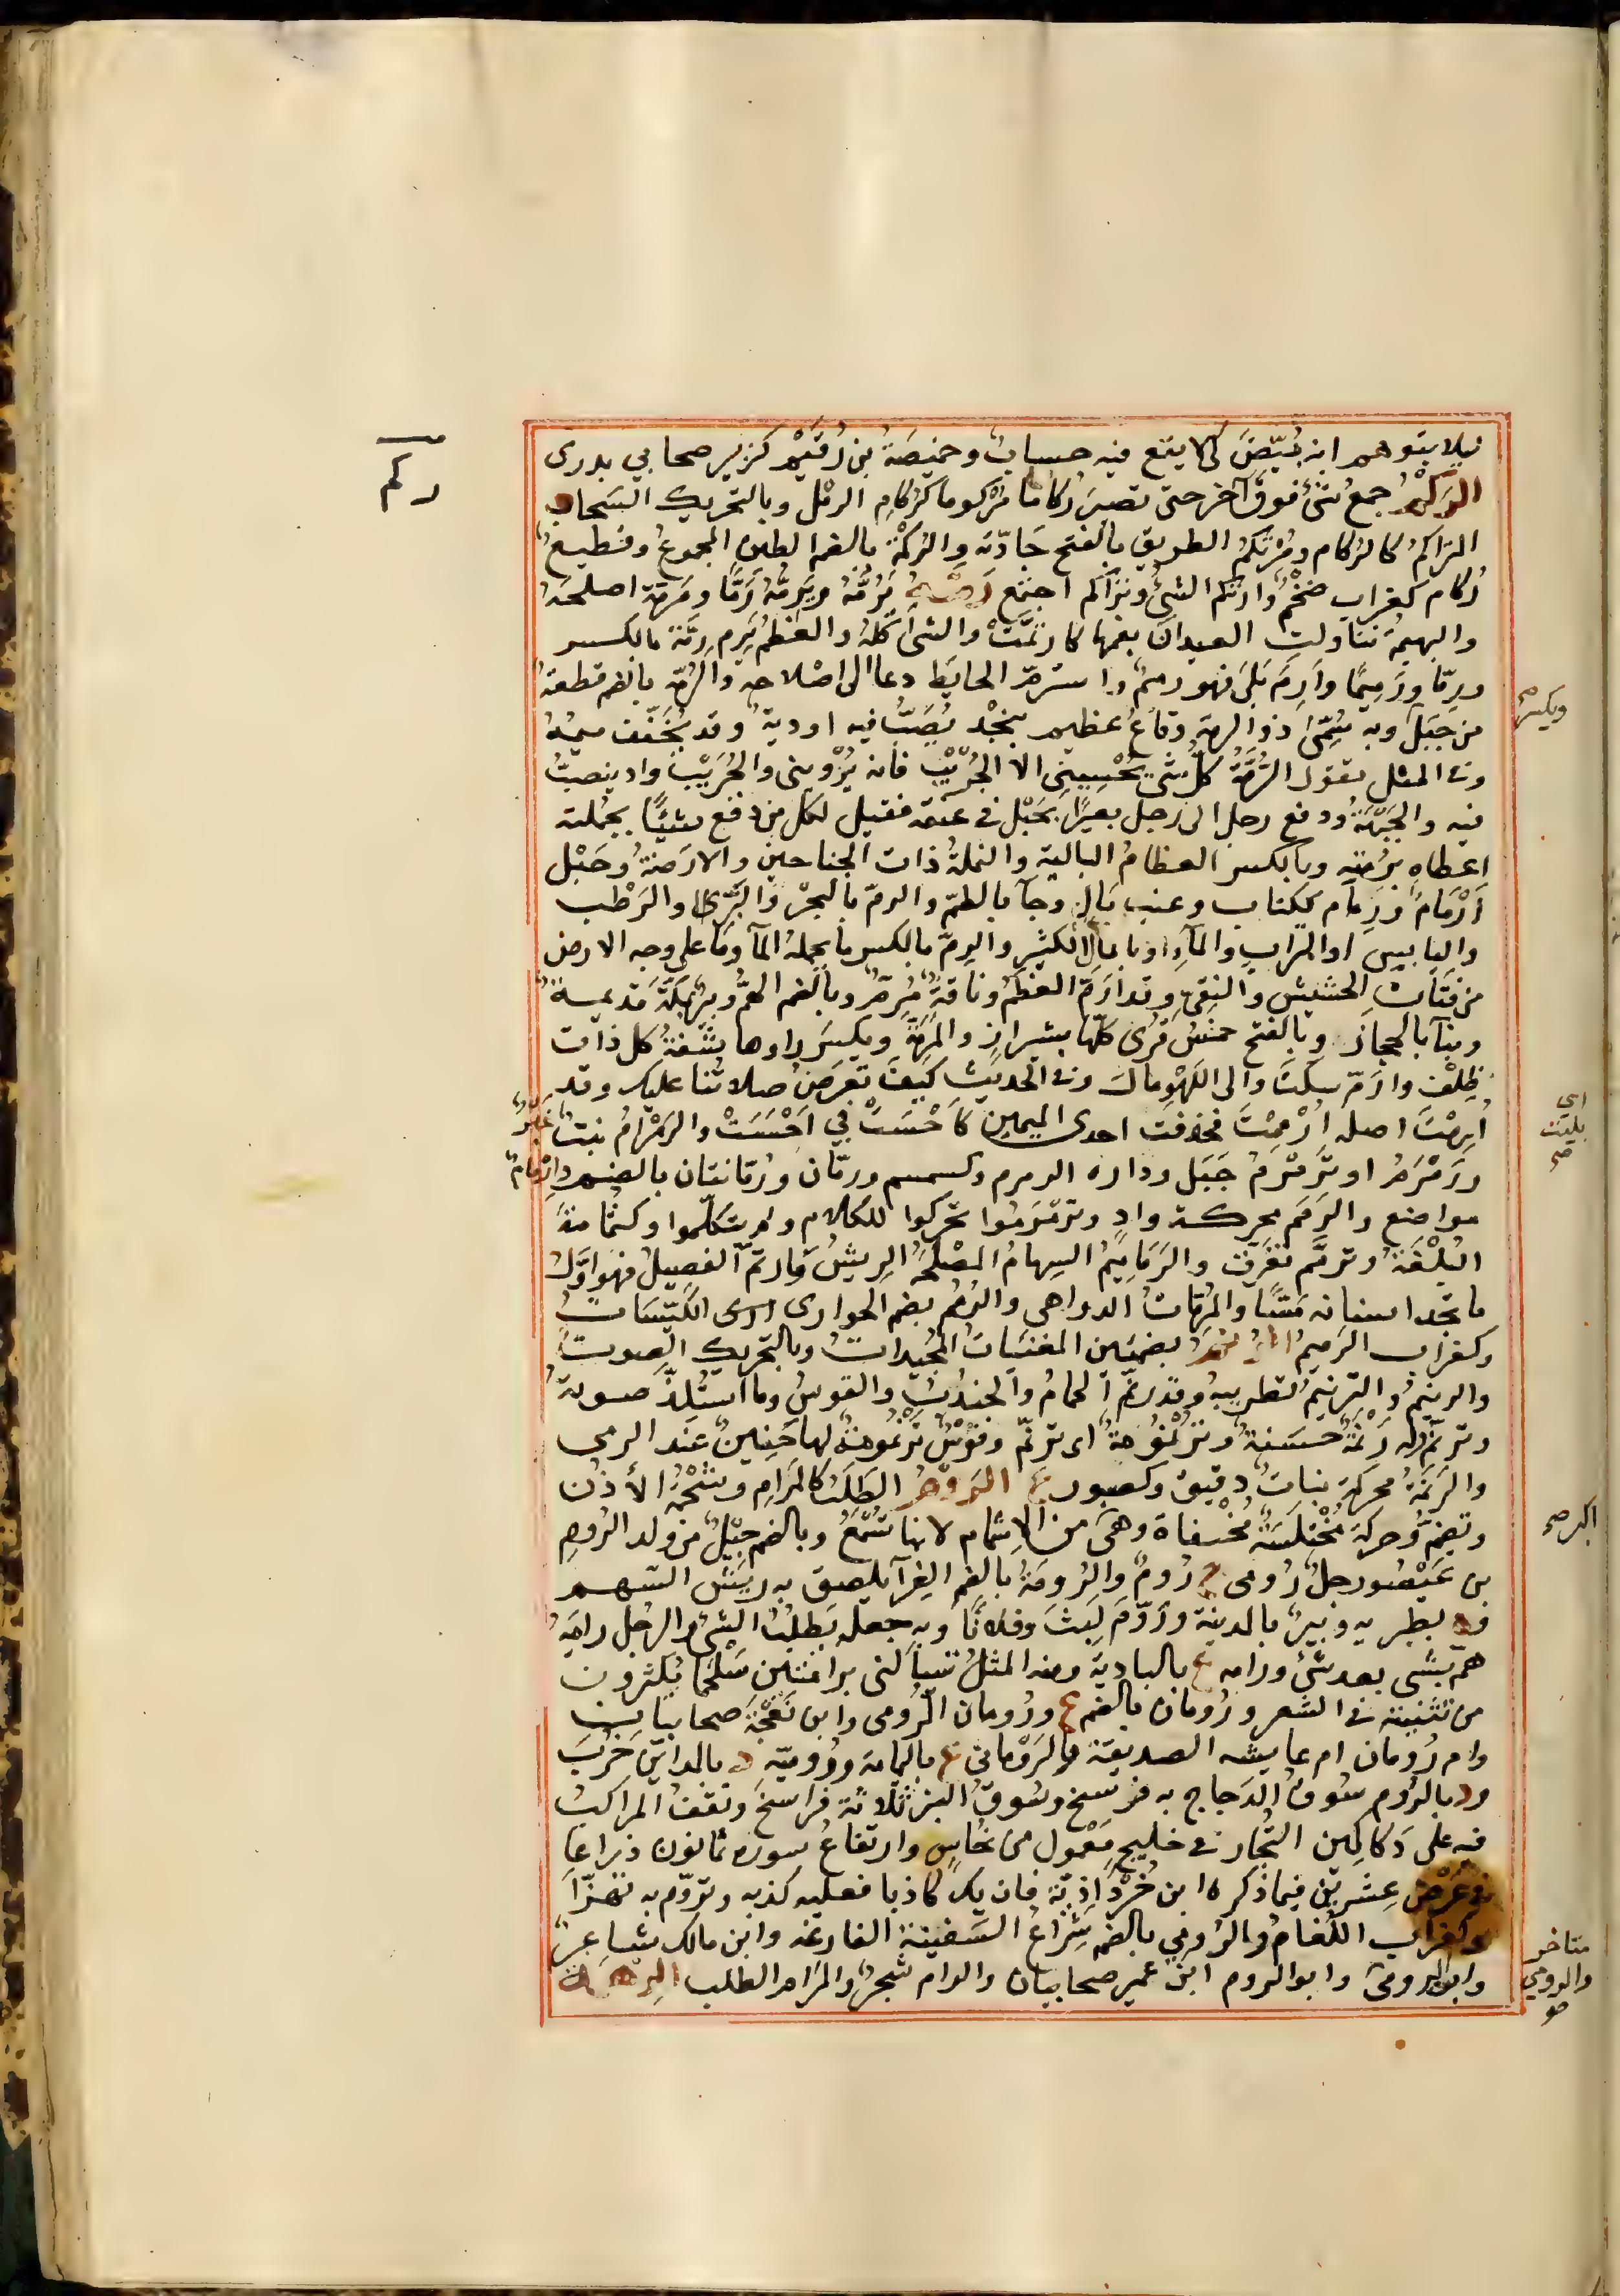 ليلا يتوهم انه بُيّضَ كى لا يقع فيه حسابٌ وحميصَةُ بن رُقَيْم كزبير صحابي بدرى
الرَكْمُ جمعُ شئ فوق آخر حتى تصير رُكاما مَرْكوما كرُكامِ الرمل وبالتحريك السَحابُ
المتراكمُ كالرُكام ومُرْتَكَمُ الطريق بالفتح جَادّتَه والرُكْمَة بالضم الطين المجموعُ وقطيعٌ
رُكام كغراب ضخْمٌ وارتكم الشئُ وتراكم اجتمع رَمَّهُ يَرُمُّهُ ويَرِمُّهُ رَمًّا ومَرمّة اصلحَهُ
والبهيمةُ تناولت العيدانَ بفمها كارتمَّتْ والشئَ اكلهُ والعظمُ يَرِم رِمّة بالكسر
ورِمّا ورَمِيمًا وارَمَ بَلىَ فهو رميمٌ واسترمّ الحايَط دعا الى اصْلاحه والرُمّة بالضم قطعةٌ
من حَبَل وبه سُمِّىَ ذو الرمة وقاعٌ عظيم بنَجْد تنصَبُّ فيه اودية وقد يُخَفَّف ميمُهُ
وفى المثل تقول الرُمَّةُ كلُّ شئ يُحْسِينِى الا الجُرَيْبَ فانه يُرْوينى والجُرَيْبُ واد ينصبُّ
فيه والجَبْهَةُ ودفع رجل الى رجل بعيرًا بحَبْل في عنقه فقيل لكل من دفع شيئًا بجُملته
اعطاه برُمته وبالكسر العظامُ البالية والنملةُ ذات الجناحين والارَضةُ وحَبْل
اَرْمَامٌ ورِمَام ككتاب وعنب بَالٍ وجآ بالطمّ والرمّ بالبحْر والثَرَى او الرَطْب
واليابس او التراب والمآءِ او بالمال الكثير والرِمّ بالكسر ما يحمله المآ وما على وجه الارض
من فتات الحشيش والنِقىِ وقد ارَمّ العظْمُ وناقةٌ مُرِمّ وبالضم الهمُّ وبيرٌ بمكةَ قديمة
وبنآ بالحجاز وبالفتح خمسُ قُرًى كلّها بشيراز والمَرِمّةُ ويكسَر راوها شفةُ كل ذات
ظِلْف وارَمّ سكَتَ والى اللَهْو مالَ وفى الحديث كيف تعرَضُ صلاتُنا عليك وقد
اَرِمْتَ اصله اَرْمَمْتَ فحذفت احدى الميمين كَاَحْسَتَ في اَحْسَسَتْ والرَمْرَامُ نبتٌ اغْبَرُ
ورَمْرَمُ او تَرَمْرُمُ جَبَل ودارة الرمرم وكسمسم ورمّان ورُمّانتان بالضم واِرْمامٌ
مواضع والرَمَم محركة وادٍ وترَمْرَمُوا تحركوا للكلام ولم يتكلموا وكثُمامَة
البُلْغَةُ وترمَّم تفرَّق والرَمَامِيمُ السهامُ المصْلَحَةُ الريشُ وارتمّ الفصِيلُ فهو اوّلُ
ما تجد اسنانه مَسًّا والمُرِمّاتُ الدواهى والرُمُم بضم الجوارى الكَيّسَاتُ
وكغراب الرَميمُ الرُنُمُ بضمتين المغنيَاتُ المُجيداتُ وبالتحريك الصوتُ
والرنيمُ والترْنِيمُ التطريبُ وقد رنّمَ الحمامُ والجندُبُ والقوسُ وما استُلِذّ صوتهُ
وترنّم وله رَنْمَةٌ حسنةٌ وتَرْنُمُوتةٌ اى ترنّم وقَوْسٌ تَرْنُموتةٌ لها حَنِينٌ عند الرمى
والرَنَمَةُ محركة نباتٌ دقيق وكصبور ع الرَوْمُ الطلَبُ كالمَرَام وشحْمَةُ الأذُن
وتضمّ وحركة مُختلَسَةٌ مُخْفاة وهى من الاِشمام لانها تُسْمَعُ وبالضم جيلٌ من ولد الروم
بن عَيْصُو رجلٌ رُومى ج رُومٌ والرُومَةُ بالضم الغِرآ يلصق به ريش السَهم
وة بطبرية وبيرٌ بالمدينة ورَوّمَ لَبِثَ وفلانًا وبه جعله يَطلُبُ الشئ والرجل رايَهُ
همّ بشئ بعد شئ ورامه ع بالبادية ومنه المثلُ تسألنى برامتين سَلْجما يكثرون
من تثنيته فى الشعر ورُومان بالضم ع ورُومان الرُومى وابن نَعْجَةَ صحابيان
وام رُومان ام عايشه الصديقة والرَوْمانى ع باليمامة ورُوميّة د بالمداين خَرُبَ
ود بالرُوم سُوقُ الدَجاج به فرسخ وسُوقُ البُر ثلاثة فراسخ وتقفُ المراكبُ
فيه على دَكاكين التُجار فى خليج مَعْمول من نُحاس وارتفاعُ سوره ثمانون ذراعا
في عَرْض عِشرين فيما ذكره ابن خُرْدَاذِبَة فان يكُ كاذبا فعليه كذبه وتروّم به تهزّأ
وكغراب اللُغامُ والرُومي بالضم شِرَاعُ السفينة الفارغه وابن مالك شاعرٌ
وابو الرومىّ وابو الروم ابنُ عُمير صحابيان والرام شجرٌ والمَرام الطلب الرِهْمَة
ركم
ويكسر صح
اى بليت صح
اكبر صح
متاخر
والرومي